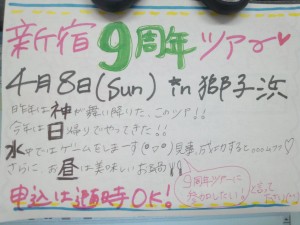 新宿9周年ツアー♡
4月8日(Sun) in 獅子浜
昨年は神が舞い降りた、このツアー!!
今年は日帰りでやってきた!!
水中ではゲームをします(^o^)見事、成功すると
さらに お昼は美味しいお鍋!!
申込は随時OK!
9周年ツアーに
参加したい!と言って
下さい